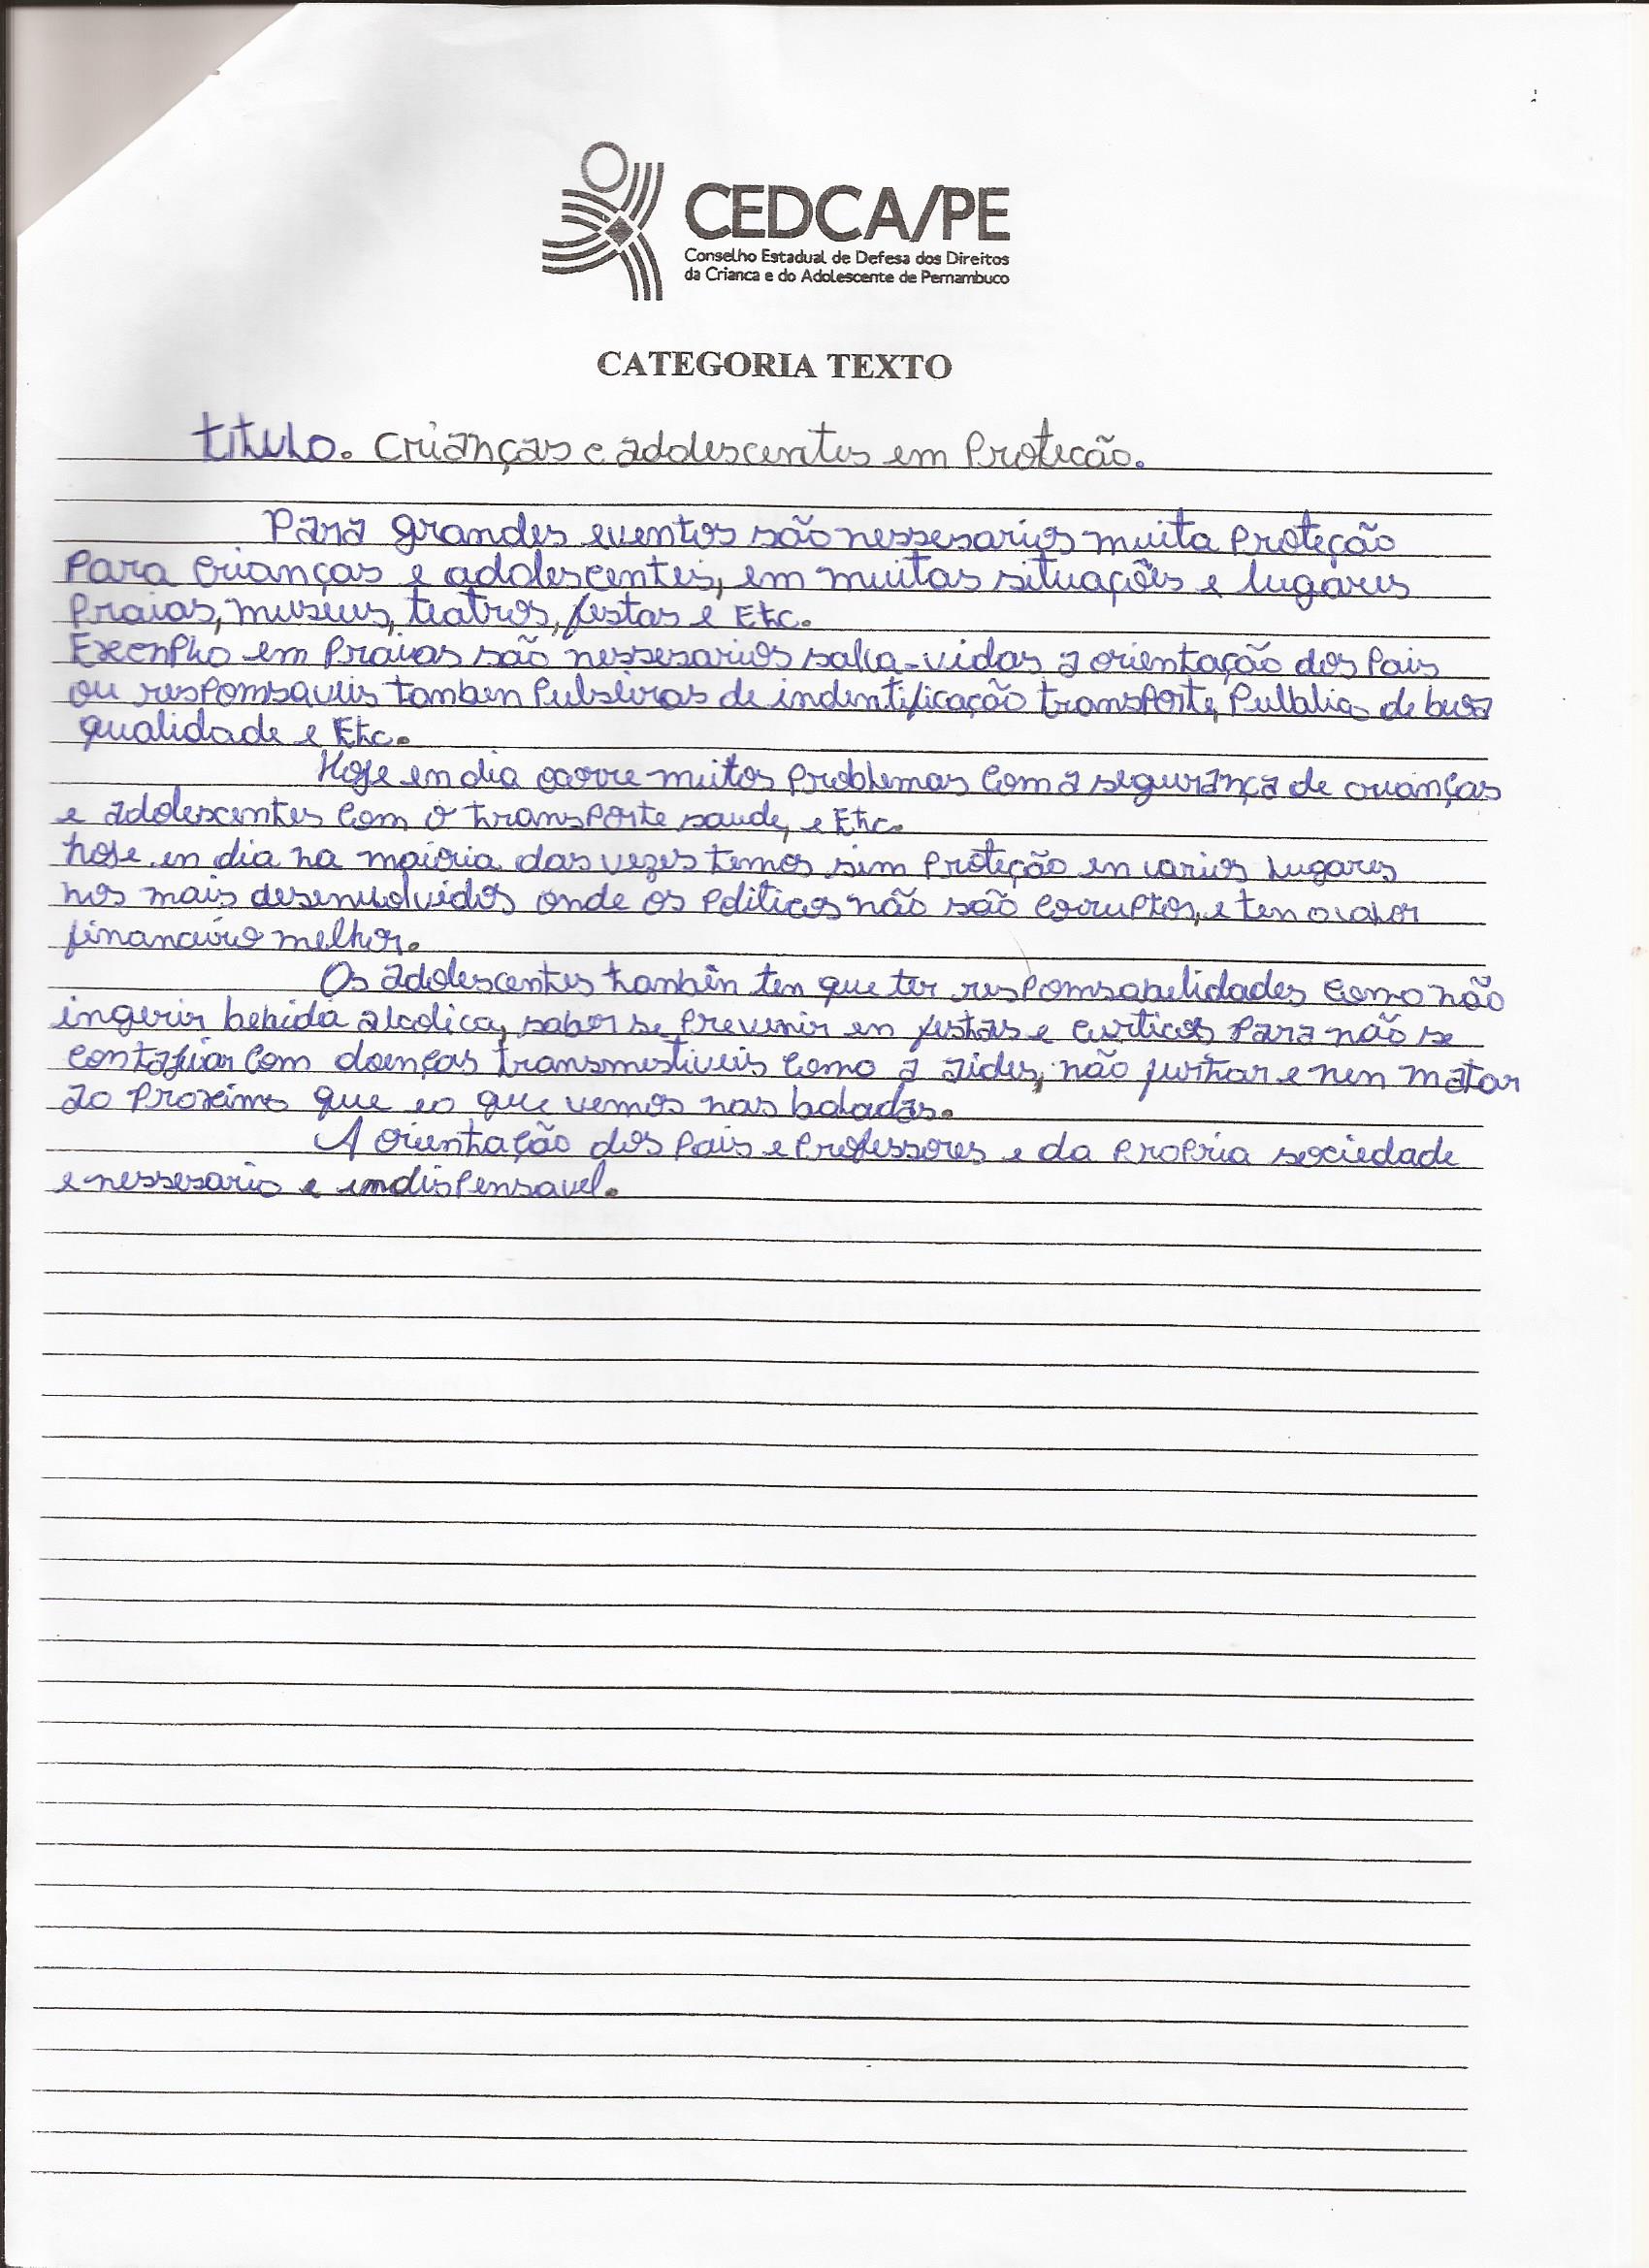 CEDCA/PE
Conselho Estadual de Defesa dos Direitos
da Crianca e do Adolescente de Pernambuco
CATEGORIA TEXTO
titulo. Crianças e adolescentes em Proteção.
Para grandes eventos são nessesarios muita Proteção
Para crianças e adolescentes, em muitas situações e lugares
Praias, museus, teatros, festas e Etc.
Exenplho em Praias são nessesarios salva-vidas a orientação dos Pais
ou responsaveis tamben Pulseiras de indentificação transporte, de
qualidade e Etc.
Hoje en dia ocorre muitos Problemas com a segurança de crianças
e adolescentes com o transporte saude, e Etc.
hoje en dia na maioria das vezes temos sim Proteção en varios Lugares
nos mais desenvolvidos onde os Politicos não são corruptos, e ten o valor
financeiro melhor.
Os adolescentes tanbên ten que ter responsabelidades como não
ingerir bebida alcolica, saber se Prevenir en festas e Para não se
com doenças como a aides, não furtar e nen matar
ao Proximo que eo que vemos nas baladas.
A orientação dos Pais e Professores e da Propria sociedade
e nessesario e indispensavel.